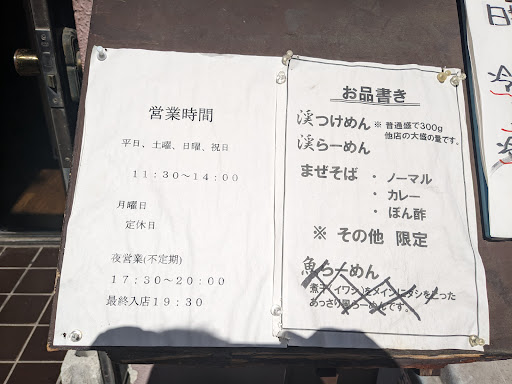 営業時間
平日、土曜、日曜、祝日
11:30~14:00
月曜日
定休日
夜営業(不定期)
17:30~20:00
最終入店19:30
お品書き
渓つけめん ※ 普通盛で300g
他店の大盛の量です。
渓らーめん
まぜそば ・ ノーマル
・ カレー
・ ぽん酢
※ その他 限定
魚らーめん
煮干(イワシ)をメインにダシをとった
あっさり らーめんです。
日
冷